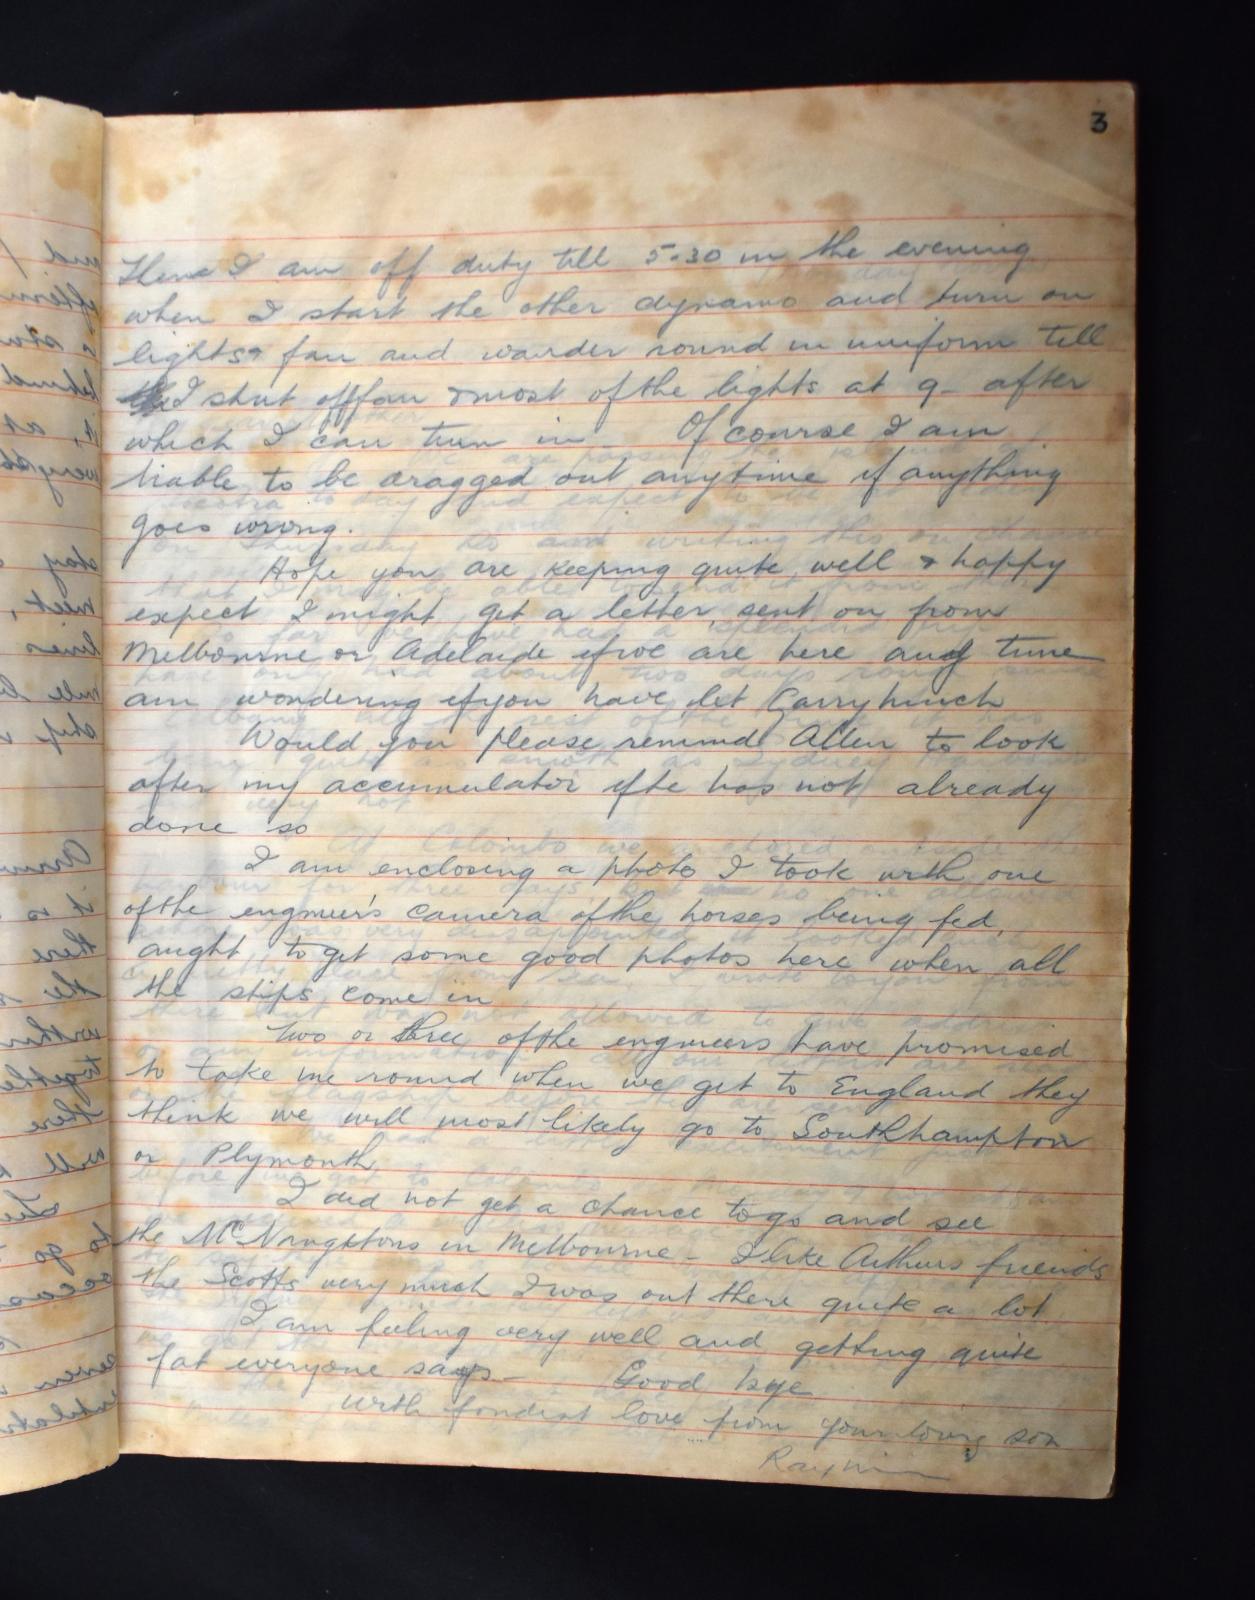 3
Then I am off duty till 5-30 in the evening
when I start the other dynamo and turn on
lights & fan and wander round in uniform till
I shut off fan & most of the lights at 9 - after
which I can turn in - Of course I am
liable to be dragged out anytime if anything
goes wrong.
Hope you are keeping quite well & happy
expect I might get a letter sent on from
Melbourne or Adelaide if we are here any time
am wondering if you have let Carryhinch
Would you please remind Allen to look
after my accumulator if he has not already
done so
I am enclosing a photo I took with one
of the engineer's camera of the horses being fed,
aught to get some good photos here when all
the ships come in
Two or three of the engineers have promised
to take me round when we get to England they
think we will most likely go to Southhampton
or Plymouth
I did not get a chance to go and see
the McNaughtons in Melbourne - I like Arthurs friends
the Scotts very much I was out there quite a lot
I am feeling very well and getting quite
fat everyone says - Good bye
With fondest love from your loving son